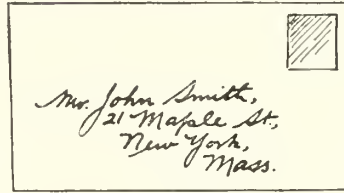 Mr. John Smith,
21 Maple St.,
New York,
Mass.